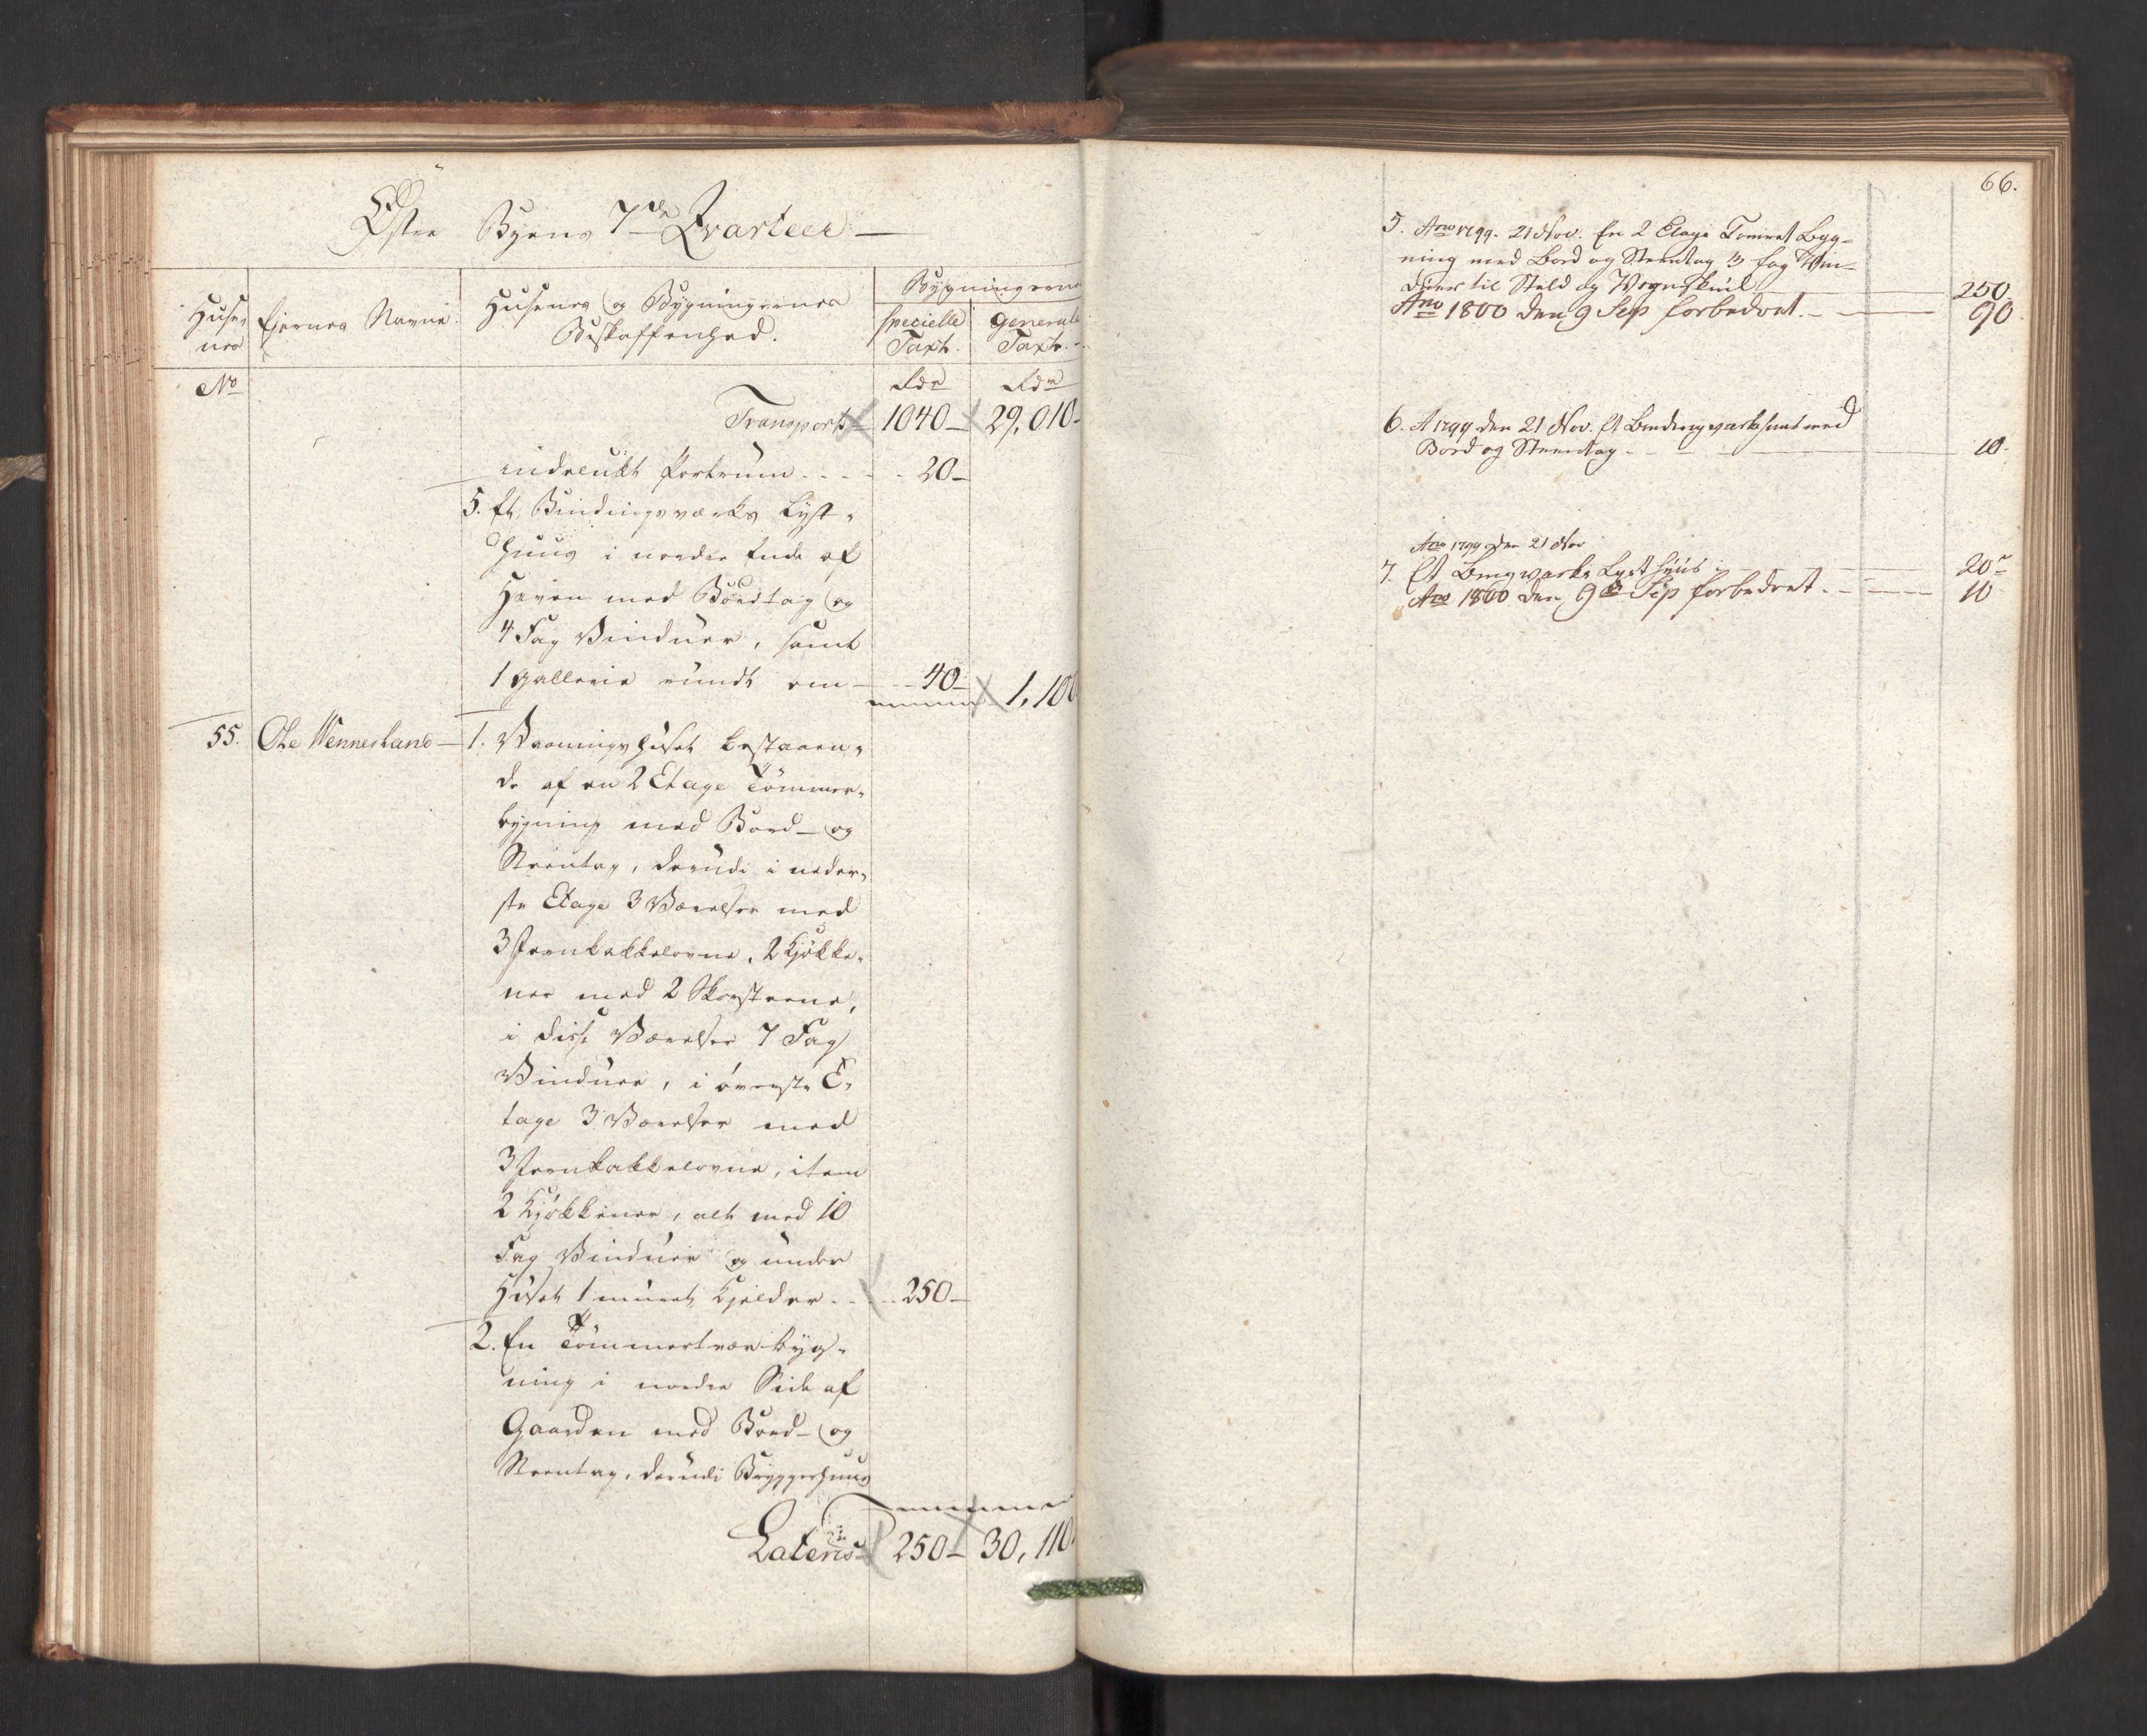 Øster Byens 7de Qvarteer
Huse- nes | Eiernes Navne. | Husenes og Bygningernes Beskaffenhed. | Bygningerne
specielle Taxt. | generale Taxt.
No | Rdr | Rdr
Transport 1040 29,010
indelukt Portrum 20
5. Et Bindingsværks Lyst-
huus i nordre Ende af
Haven med Bordtag og
4 Fag Vinduer, samt
1 Gallerie rundt om 40 1,100
55. Ole Wennesland 1. Vaaningshuset bestaaen-
de af en 2 Etage Tømmer-
bygning med Bord- og
Steentag, derudi i neder-
ste Etage 3 Værelser med
3 Jernkakkelovne, 2 Kjøkke-
ner med 2 Skorsteene,
i disse Værelser 7 Fag
Vinduer, i øverste E-
tage 3 Værelser med
3 Jernkakkelovne, item
2 Kjøkkener, alt med 10
Fag Vinduer og under
Huset 1 muret Kjelder 250
2. En Tømmertværbyg-
ning i nordre Side af
Gaarden med Bord- og
Steentag, derudi Bryggerhuus
Lateris 250 30,110
66.
5. Ano 1799. 21 Nov. En 2 Etage Tømret Byg-
ning med Bord og Steentag 3 fag Vin-
duer til Stald og Vognskuul 250
Ano 1800 den 9 Sep forbedret. 90
6. A 1799 den 21 Nov. Et Bindingværkhuus med
Bord og Steentag 10.
Ano 1799 den 21 Nov
7. Et Bingværks Lysthuus 20
Ano 1800 den 9de Sep forbedret. 10